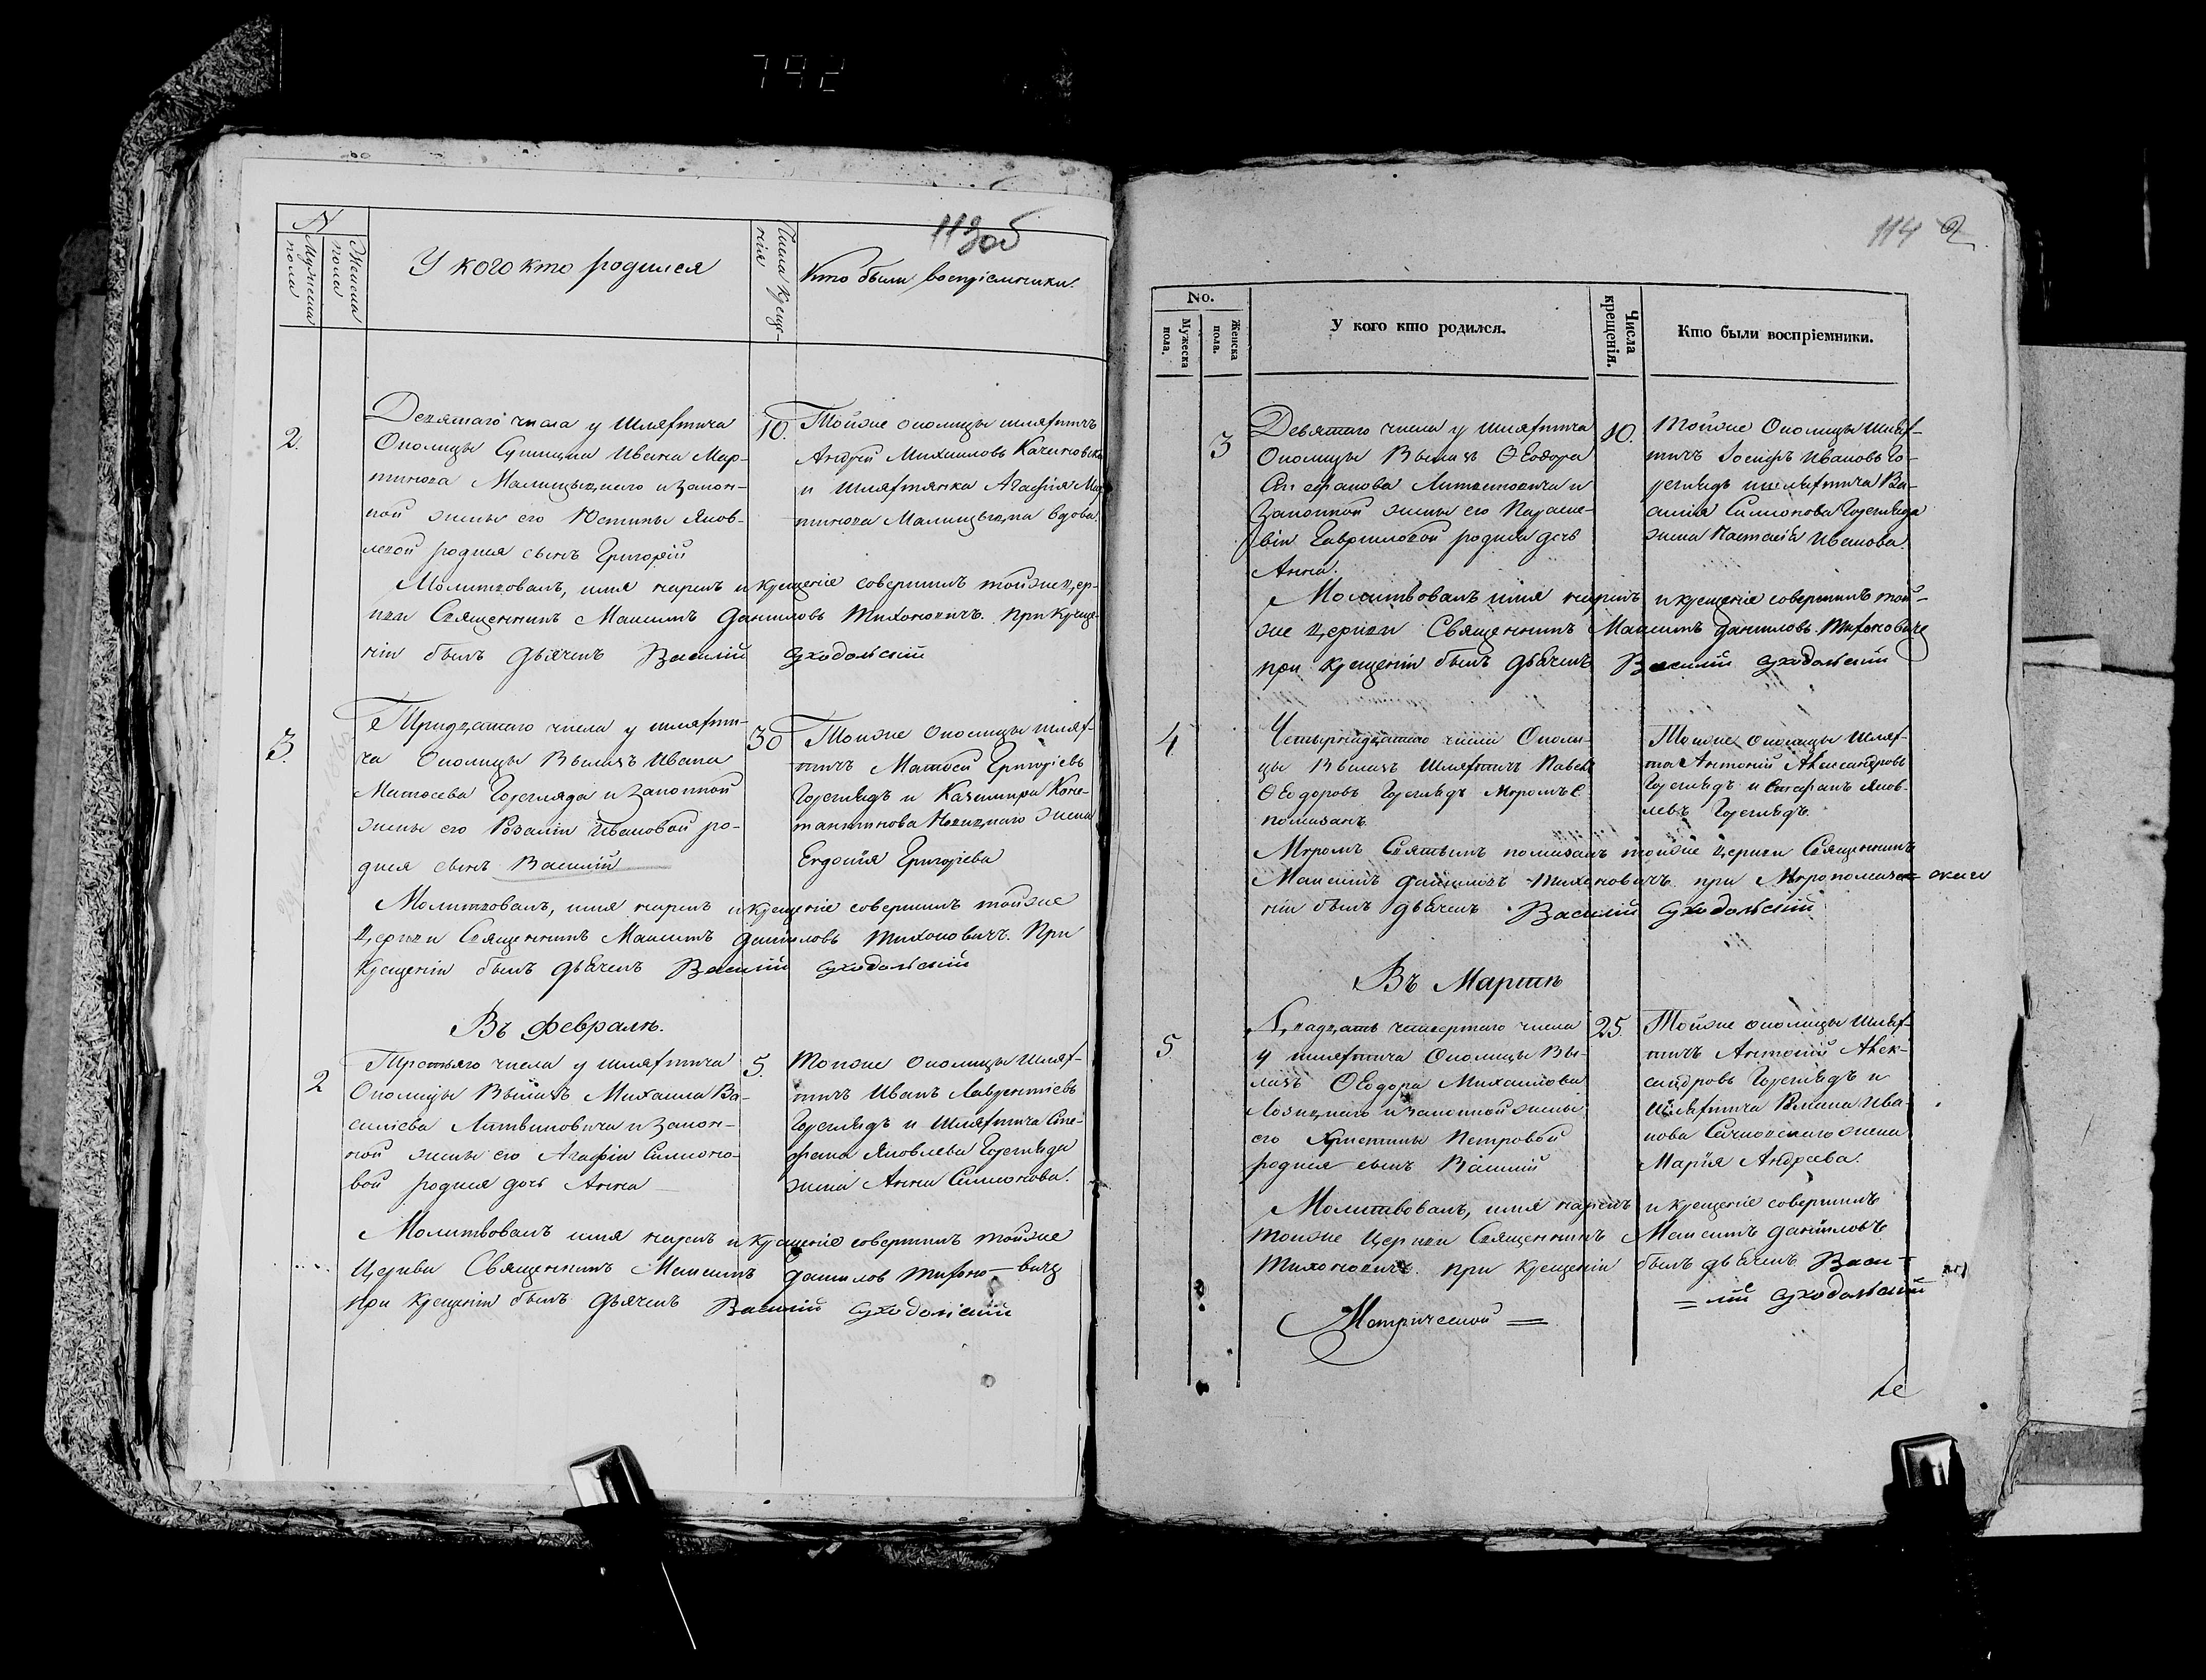 792
113об
N
Мужеска пола
Женска пола
У кого кто родился
Числа крещенія
Кто были воспріемники.
2.
Девятаго числа у шляхтича
Околицы Сушицка Ивана Мар-
тинова Малишевскаго и закон-
ной жены его Юстины Яков-
левой родился сынъ Григорій
10.
Тойже околицы шляхтичъ
Андрей Михаиловъ
и шляхтянка Агафія Мар-
тинова вдова.
Молитвовалъ, имя нарекъ и крещеніе совершилъ тойже цер-
кви Священникъ Максимъ Даниловъ Тихоновичъ. При креще-
ніи былъ дьячекъ Василій Суходольскій
3.
Тридцатаго числа у шляхти-
ча Околицы Вылазъ Ивана
Матѳеева Горегляда и законной
жены его Розаліи Ивановой ро-
дился сынъ Василій
30
Тойже околицы шлях-
тичъ Матѳей Григоріевъ
Гореглядъ и Казимира Конс-
тантинова жена
Евдокія Григорьева
Молитвовалъ, имя нарекъ и крещеніе совершилъ тойже
Церкви Священникъ Максимъ Даниловъ Тихоновичъ. При
крещеніи былъ дьячекъ Василій Суходольскій
Въ Февралѣ.
2
Третьяго числа у шляхтича
Околицы Вылазъ Михаила Ва-
силіева Литвиновича и закон-
ной жены его Агафіи Симоно-
вой родися дочь Анна
5.
Тойже Околицы Шлях-
тичъ Иванъ Лаврентіевъ
Гореглядъ и шляхтича Сте-
фана Яковлева Горегляда
жена Анна Симонова.
Молитвовалъ имя нарекъ и крещеніе совершилъ тойже
Церкви Священникъ Максимъ Данилов Тихоно-вичъ
при крещеніи былъ дьячекъ Василій Суходольскій
114 2
No.
Мужеска пола.
Женска пола.
У кого кто родился.
Числа крещенія.
Кто были воспріемники.
3
Девятаго числа у шляхтича
Околицы Вылазъ Ѳеодора
Стефанова Литвиновича и
Законной жены его Параске-
віи Гавриловой родися дочь
Анна.
10.
Тойже Околицы Шлях-
тичъ Іосифъ Ивановъ Го-
реглядъ и шляхтича Ва-
силія Симонова Горегляда
жена Настасія Иванова.
Молитвовалъ имя нарекъ и крещеніе совершилъ той-
же церкви Священникъ Максимъ Даниловъ Тихоновичъ
при крещеніи былъ дьячекъ Василій Суходольскій
4
Четырнадцатаго числа Околи-
цы Вылазъ Шляхтичъ Павелъ
Ѳеодоровъ Гореглядъ Мѵромъ С.
помазанъ
Тойже околицы Шлях-
та Антоній Александровъ
Гореглядъ и Стефанъ Яков-
левъ Гореглядъ.
Мѵромъ Святымъ помазалъ тойже Церкви Священникъ
Максимъ Даниловъ Тихоновичъ при Мѵропомаза-
ніи былъ дьячекъ Василій Суходольскій
Въ Мартѣ
5
Двадцать четвертаго числа
у шляхтича Околицы Вы-
лазъ Ѳеодора Михаилова
Лозицкаго и законной жены
его Христины Петровой
родился сынъ Василій
25.
Тойже околицы Шлях-
тичъ Антоній Алек-
сандровъ Гореглядъ и
Шляхтича Романа Ива-
нова жена
Марія Андреева.
Молитвовалъ, имя нарекъ и крещеніе совершилъ
тойже Церкви Священникъ Максимъ Даниловъ
Тихоновичъ. при крещеніи былъ дьячекъ Васи-
=лій Суходольскій
Метрической =